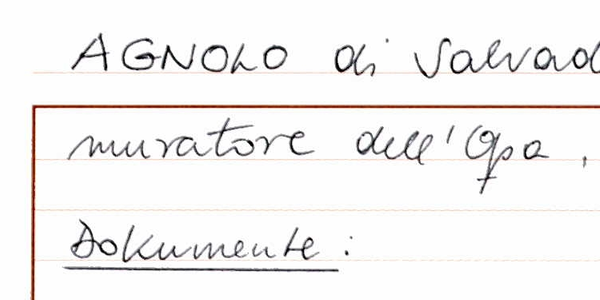 AGNOLO di Salvad
muratore dell'Opa,
Dokumente: